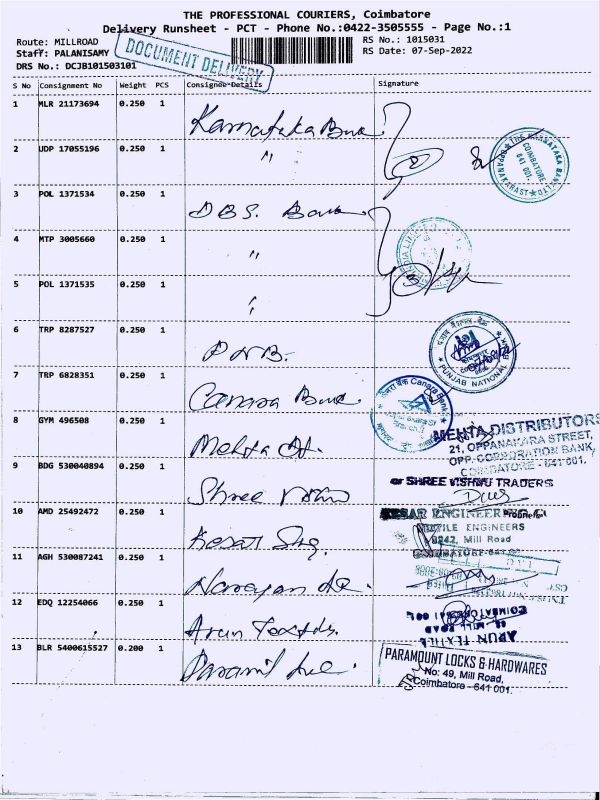 THE PROFESSIONAL COURIERS, Coimbatore
Delivery Runsheet - PCT - Phone No.:0422-3505555 - Page No.:1
Route: MILLROAD
Staff: PALANISAMY
DRS No.: DCJB101503101
DOCUMENT DELIVERY
RS No.: 1015031
RS Date: 07-Sep-2022
S No Consignment No Weight PCS Consignee Details Signature
1 MLR 21173694 0.250 1 Karnataka Bank
2 UDP 17055196 0.250 1 "
THE KARNATAKA BANK LTD
COIMBATORE
641 001.
OPPANAKARAST
3 POL 1371534 0.250 1 DBS. Bank
4 MTP 3005660 0.250 1 "
5 POL 1371535 0.250 1
6 TRP 8287527 0.250 1 PNB.
पंजाब नैशनल बैंक
PUNJAB NATIONAL BANK
7 TRP 6828351 0.250 1 Canara Bank
केनरा बैंक Canara Bank
8 GYM 496508 0.250 1 Mehta
MEHTA DISTRIBUTORS
21, OPPANAKARA STREET,
OPP. CORPORATION BANK,
COIMBATORE - 641 001.
9 BDG 530040894 0.250 1 Shree
For SHREE VISHNU TRADERS
Proprietor
10 AMD 25492472 0.250 1 Kesar Eng.
KESAR ENGINEERING
TEXTILE ENGINEERS
Mill Road
COIMBATORE-641
11 AGH 530087241 0.250 1 Narayan
12 EDQ 12254066 0.250 1 Arun Textils.
ARUN TEXTILE
MILL ROAD
COIMBATORE-641 001
13 BLR 5400615527 0.200 1
PARAMOUNT LOCKS & HARDWARES
No: 49, Mill Road,
Coimbatore - 641 001.